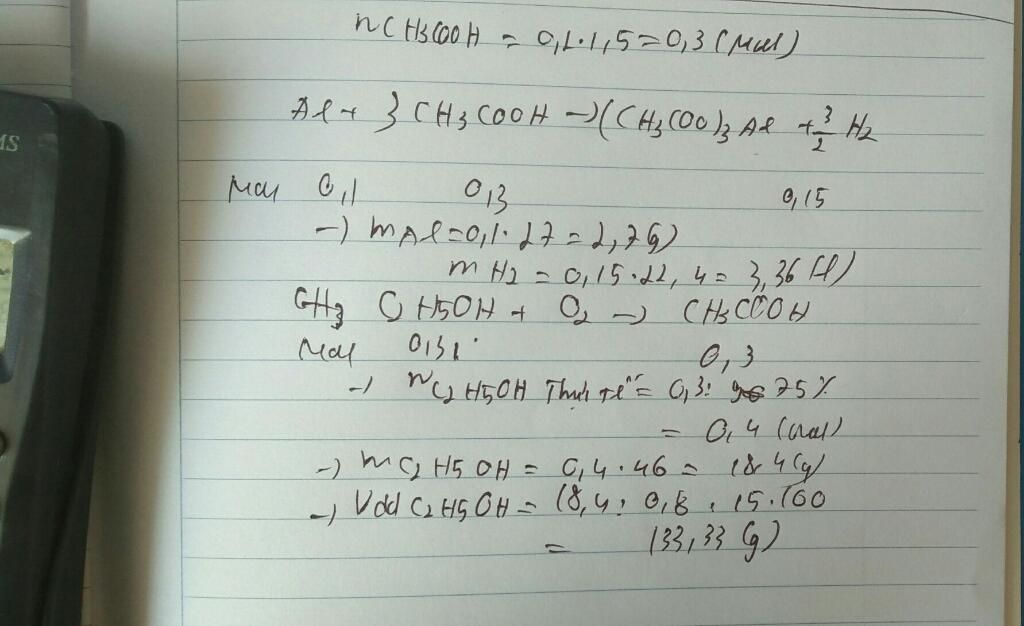 nCH3COOH = 0,2.1,5=0,3 (mol)
Al + 3 CH3COOH → (CH3COO)3 Al + 3/2 H2
Mol 0,1 0,3 0,15
→ mAl=0,1.27=2,7(g)
m H2 = 0,15.22,4 = 3,36 (l)
C2H5OH + O2 → CH3COOH
Mol 0,3 0,3
→ nC2H5OH = 0,3: 75%
= 0,4 (mol)
→ mC2H5OH = 0,4.46 = 18,4(g)
→ Vdd C2H5OH = 18,4: 0,8: 15.100
= 133,33 (g)